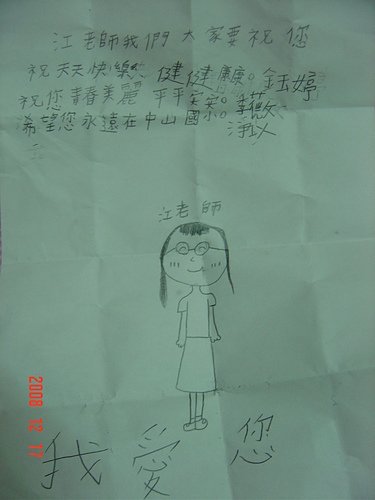 江老師我們大家要祝您
祝天天快樂、健健康康。鈺婷
祝您青春美麗平平安安。薇
希望您永遠在中山國小。淨以
江老師
我愛您
2008 12 17